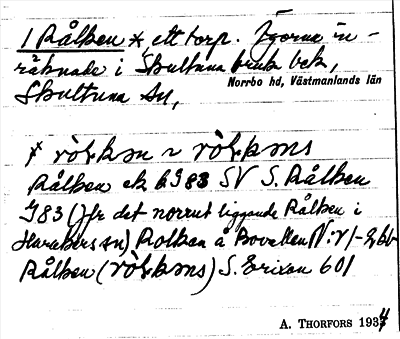 1 Rålben *, ett torp. Ägorna in-
räknade i Skultuna bruk bek,
Norrbo hd, Västmanlands län
Skultuna sn,
rö̀lbən ~ rö̀lbəns
Rålben ek bl 83 SV S. Rålben
J 83 (Jfr det norrut liggande Rålben i
Harakers sn) Rolben å Bovallen
Rålben (rö̀lbəns) S. Erixon 601
A. THORFORS 1934